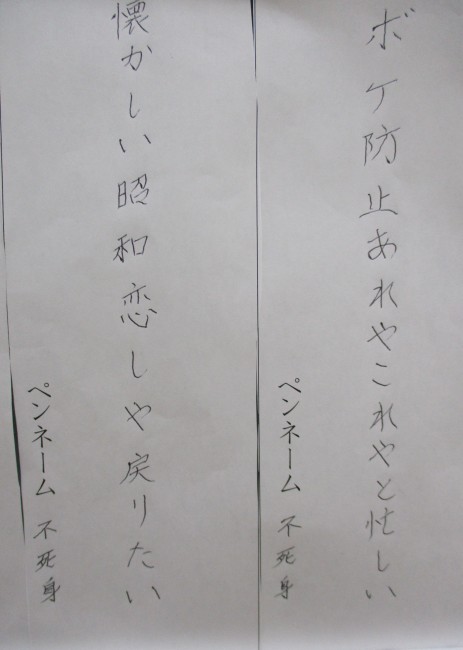 ボケ防止あれやこれやと忙しい
ペンネーム 不死身
懐かしい昭和恋しや戻りたい
ペンネーム 不死身